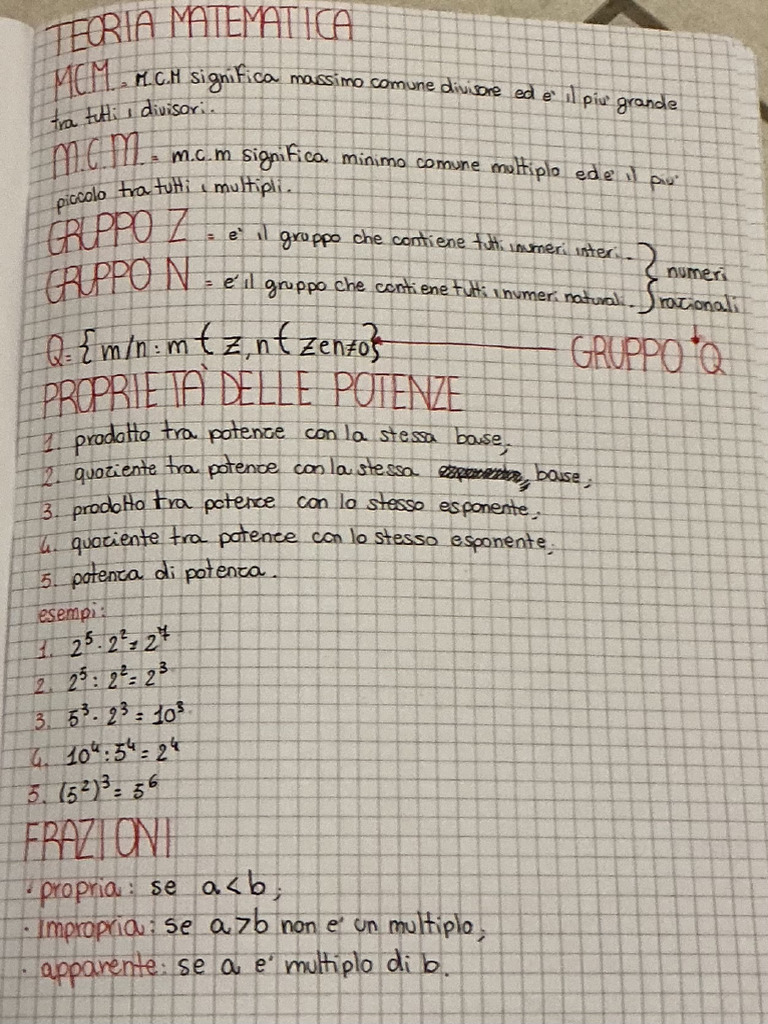 TEORIA MATEMATICA
MCM = M.C.M significa massimo comune divisore ed e' il piu' grande
tra tutti i divisori.
m.c.m = m.c.m significa minimo comune multiplo ed e' il piu'
piccolo tra tutti i multipli.
GRUPPO Z = e' il gruppo che contiene tutti i numeri interi. } numeri
GRUPPO N = e' il gruppo che contiene tutti i numeri naturali. } razionali
Q = {m/n : m { z, n { z e n≠0} GRUPPO Q
PROPRIETA' DELLE POTENZE
1. prodotto tra potenze con la stessa base;
2. quoziente tra potenze con la stessa base;
3. prodotto tra potenze con lo stesso esponente;
4. quoziente tra potenze con lo stesso esponente;
5. potenza di potenza.
esempi:
1. 2⁵ · 2² = 2⁷
2. 2⁵ : 2² = 2³
3. 5³ · 2³ = 10³
4. 10⁴ : 5⁴ = 2⁴
5. (5²)³ = 5⁶
FRAZIONI
· propria: se a < b;
· impropria: se a > b non e' un multiplo;
· apparente: se a e' multiplo di b.